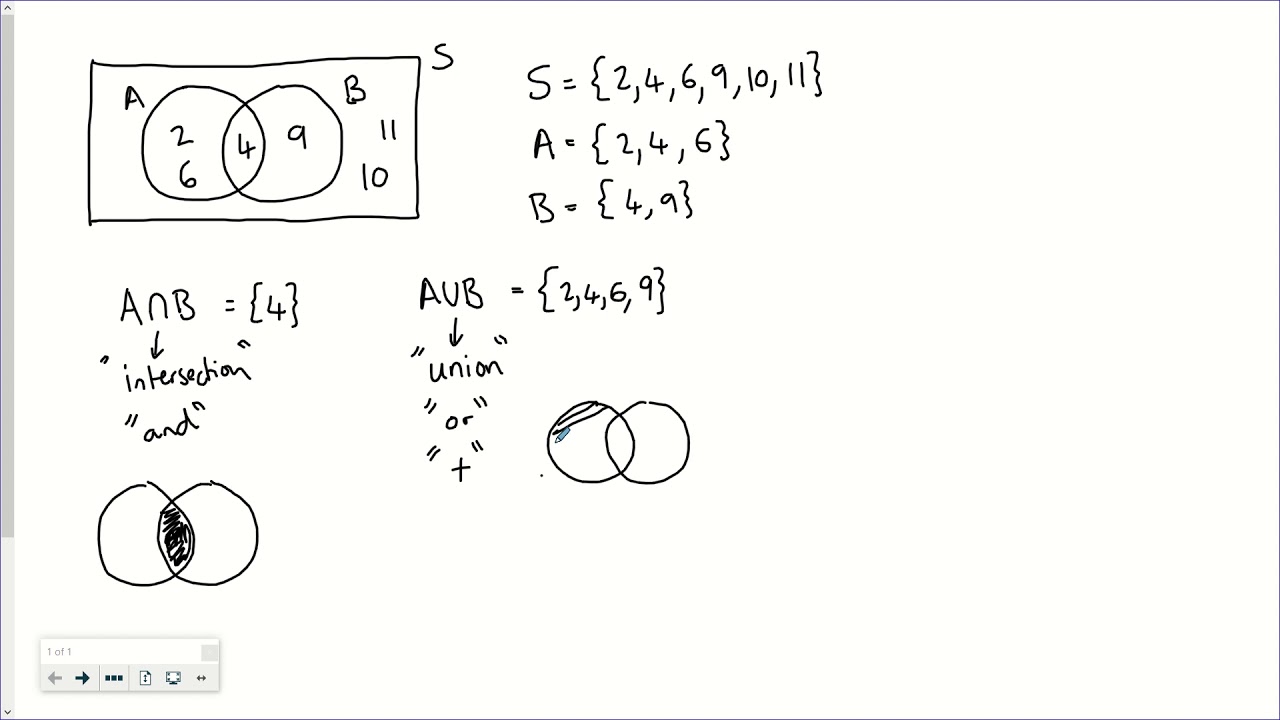 S
A
B
2
4
9
11
6
10
S = {2,4,6,9,10,11}
A = {2,4,6}
B = {4,9}
A∩B = {4}
"intersection"
"and"
A∪B = {2,4,6,9}
"union"
"or"
"+"
1 of 1